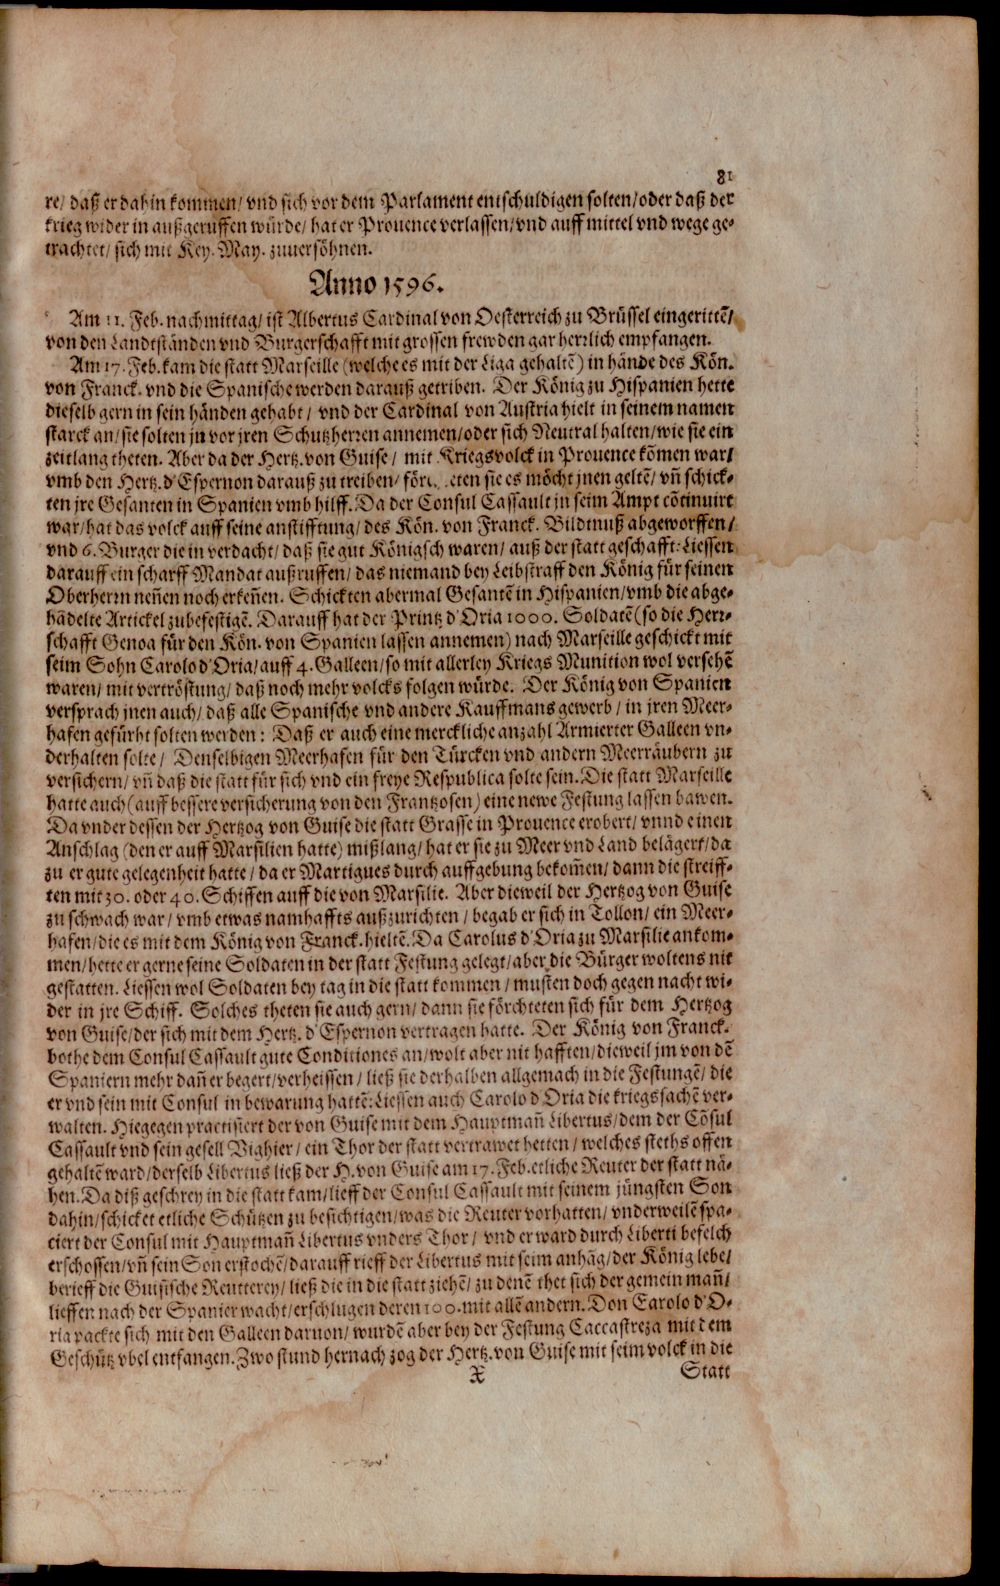 81
re/ daß er dahin kommen/ vnd sich vor dem Parlament entschuldigen solten/ oder daß der
krieg wider in außgeruffen würde/ hat er Prouence verlassen/ vnd auff mittel vnd wege ge-
trachtet/ sich mit Key. May. zuuersöhnen.
Anno 1596.
Am 11. Feb. nachmittag/ ist Albertus Cardinal von Oesterreich zu Brüssel eingerittē/
von den Landtständen vnd Burgerschafft mit grossen frewden gar herrlich empfangen.
Am 17. Feb. kam die statt Marseille (welche es mit der Liga gehaltē) in hände des Kön.
von Franck. vnd die Spanische werden darauß getriben. Der König zu Hispanien hette
dieselb gern in sein händen gehabt/ vnd der Cardinal von Austria hielt in seinem namen
starck an/ sie solten jn vor jren Schutzherren annemen/ oder sich Neutral halten/ wie sie ein
zeitlang theten. Aber da der Hertz. von Guise/ mit Kriegsvolck in Prouence kōmen war/
vmb den Hertz. d'Espernon darauß zu treiben/ sie es möcht jnen geltē/ vn̄ schick-
ten jre Gesanten in Spanien vmb hilff. Da der Consul Cassault in seim Ampt cōtinuirt
war/ hat das volck auff seine anstifftung/ des Kön. von Franck. Bildtnuß abgeworffen/
vnd 6. Burger die in verdacht/ daß sie gut Königsch waren/ auß der statt geschafft: Liessen
darauff ein scharff Mandat außruffen/ das niemand bey Leibstraff den König für seinen
Oberherrn nen̄en noch erken̄en. Schickten abermal Gesantē in Hispanien/ vmb die abge-
hādelte Artickel zubefestigē. Darauff hat der Printz d'Oria 1000. Soldatē (so die Herr-
schafft Genoa für den Kön. von Spanien lassen annemen) nach Marseille geschickt mit
seim Sohn Carolo d'Oria/ auff 4. Galleen/ so mit allerley Kriegs Munition wol versehē
waren/ mit vertröstung/ daß noch mehr volcks folgen würde. Der König von Spanien
versprach jnen auch/ daß alle Spanische vnd andere Kauffmans gewerb/ in jren Meer-
hafen gefürht solten werden: Daß er auch eine merckliche anzahl Armierter Galleen vn-
derhalten solte/ Denselbigen Meerhafen für den Türcken vnd andern Meerräubern zu
versichern/ vn̄ daß die statt für sich vnd ein freye Respublica solte sein. Die statt Marseille
hatte auch (auff bessere versicherung von den Frantzosen) eine newe Festung lassen bawen.
Da vnder dessen der Hertzog von Guise die statt Grasse in Prouence erobert/ vnnd einen
Anschlag (den er auff Marsilien hatte) mißlang/ hat er sie zu Meer vnd Land belägert/ da
zu er gute gelegenheit hatte/ da er Martigues durch auffgebung bekom̄en/ dann die streiff-
ten mit 30. oder 40. Schiffen auff die von Marsilie. Aber dieweil der Hertzog von Guise
zu schwach war/ vmb etwas namhaffts außzurichten/ begab er sich in Tollon/ ein Meer-
hafen/ die es mit dem König von Franck. hieltē. Da Carolus d'Oria zu Marsilie ankom-
men/ hette er gerne seine Soldaten in der statt Festung gelegt/ aber die Bürger woltens nit
gestatten. Liessen wol Soldaten bey tag in die statt kommen/ musten doch gegen nacht wi-
der in jre Schiff. Solches theten sie auch gern/ dann sie förchteten sich für dem Hertzog
von Guise/ der sich mit dem Hertz. d'Espernon vertragen hatte. Der König von Franck.
bothe dem Consul Cassault gute Conditiones an/ wolt aber nit hafften/ dieweil jm von dē
Spaniern mehr dan̄ er begert/ verheissen/ ließ sie derhalben allgemach in die Festungē/ die
er vnd sein mit Consul in bewarung hattē: Liessen auch Carolo d'Oria die kriegs sachē ver-
walten. Hiegegen practisiert der von Guise mit dem Hauptman̄ Libertus/ dem der Cōsul
Cassault vnd sein gesell Vighier/ ein Thor der statt vertrawet hetten/ welches steths offen
gehaltē ward/ derselb Libertus ließ der H. von Guise am 17. Feb. etliche Reuter der statt nä-
hen. Da diß geschrey in die statt kam/ lieff der Consul Cassault mit seinem jüngsten Son
dahin/ schicket etliche Schützen zu besichtigen/ was die Reuter vorhatten/ vnderweilē spa-
ciert der Consul mit Hauptman̄ Libertus vnders Thor/ vnd er ward durch Liberti befelch
erschossen/ vn̄ sein Son erstochē/ darauff rieff der Libertus mit seim anhāg/ der König lebe/
berieff die Guisische Reutterey/ ließ die in die statt ziehē/ zu denē thet sich der gemein man̄/
lieffen nach der Spanier wacht/ erschlugen deren 100. mit allē andern. Don Carolo d'O-
ria packte sich mit den Galleen daruon/ wurdē aber bey der Festung Caccastreza mit dem
Geschütz vbel entfangen. Zwo stund hernach zog der Hertz. von Guise mit seim volck in die
X Statt